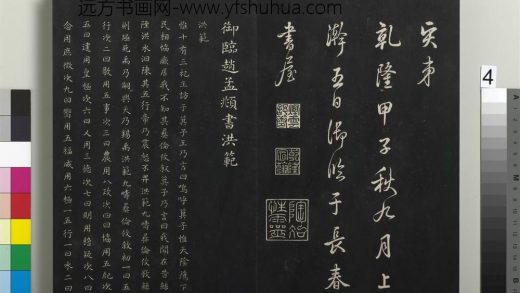 远方书画网-www.yfshuhua.com
乾隆甲子秋九月上
澣五日御臨于長春
書屋
陶冶性靈
御臨趙孟頫書洪範
洪範
惟十有三祀王訪于箕子王乃言曰嗚呼箕子惟天陰隲下
民相協厥居我不知其彝倫攸敘箕子乃言曰我聞在昔鯀
陻洪水汩陳其五行帝乃震怒不畀洪範九疇彝倫攸斁鯀
則殛死禹乃嗣興天乃錫禹洪範九疇彝倫攸敘初一曰五
行次二曰敬用五事次三曰農用八政次四曰協用五紀次
五曰建用皇極次六曰乂用三德次七曰明用稽疑次八曰
念用庶徵次九曰嚮用五福威用六極一五行一曰水二曰
4